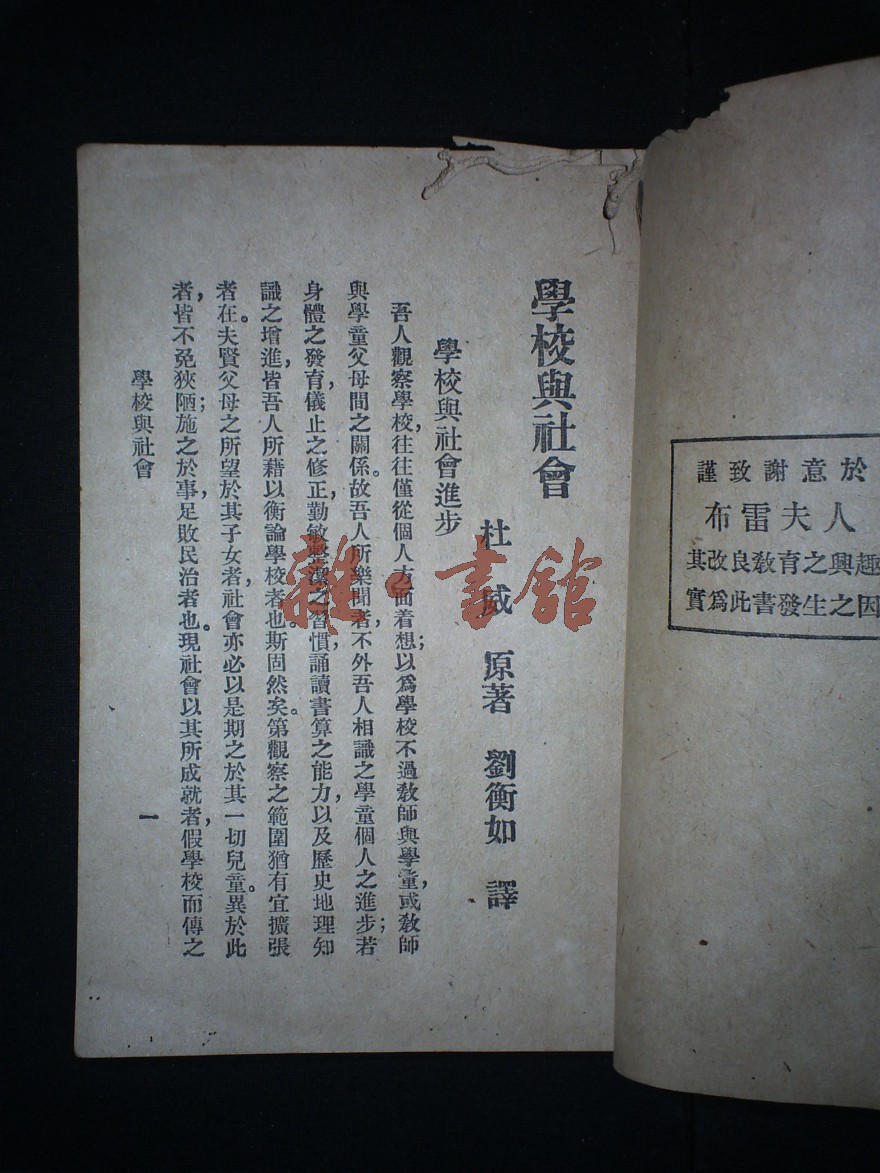 學校與社會
杜威 原著 劉衡如 譯
學校與社會進步
吾人觀察學校，往往僅從個人方面着想；以爲學校不過教師與學童，或教師
與學童父母間之關係。故吾人所樂聞者，不外吾人相識之學童個人之進步；若
身體之發育，儀止之修正，勤敏整潔之習慣，誦讀書算之能力，以及歷史地理知
識之增進，皆吾人所藉以衡論學校者也。斯固然矣。第觀察之範圍猶有宜擴張
者在。夫賢父母之所望於其子女者，社會亦必以是期之於其一切兒童。異於此
者，皆不免狹陋；施之於事，足敗民治者也。現社會以其所成就者，假學校而傳之
學校與社會
一
謹致謝意於
布雷夫人
其改良教育之興趣
實爲此書發生之因
雜·書館